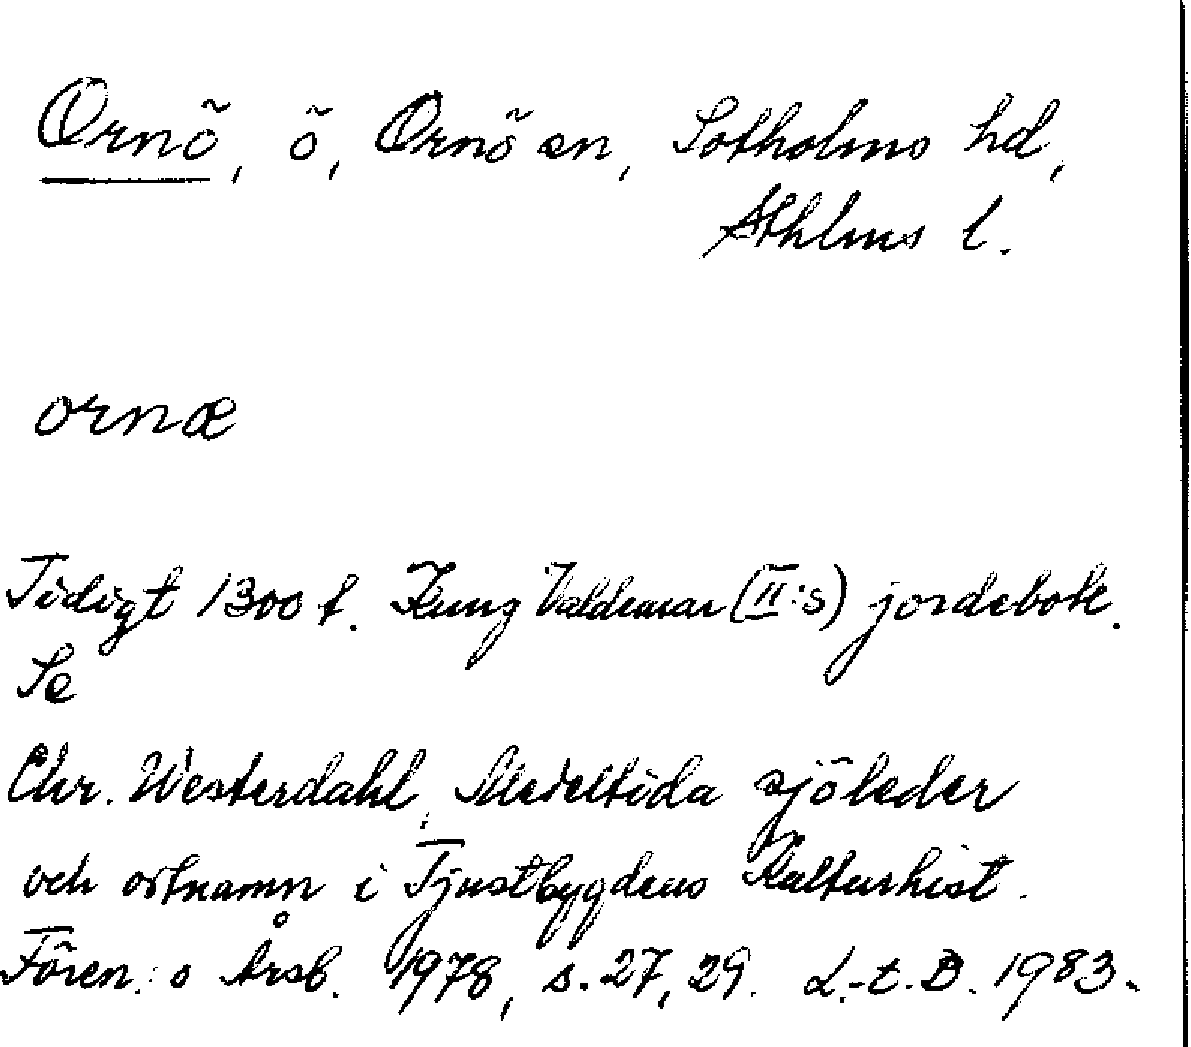 Ornö, ö, Ornö sn, Sotholms hd,
Sthlms l.
ornæ
Tidigt 1300 t. Kung Valdemar (II:s) jordebok.
Se
Chr. Westerdahl, Medeltida sjöleder
och ortnamn i Tjustbygdens Kulturhist.
Fören.:s Årsb. 1978, s. 27, 29. L.-t. B. 1983.